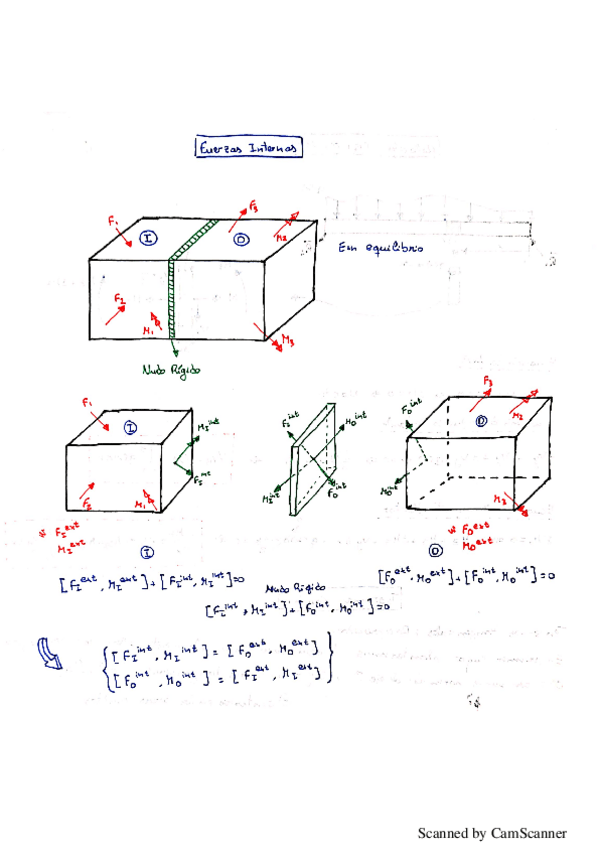 Fuerzas Internas
F₁
F₃
M₂
I
D
En equilibrio
F₂
M₁
M₃
Nudo Rígido
F₁
I
M_I^int
F_I^int
F₂
M₁
F_I^int
M_D^int
M_I^int
F_D^int
F_D^int
F₃
M₂
D
M_D^int
M₃
* F_I^ext
M_I^ext
* F_D^ext
M_D^ext
I
D
[F_I^ext, M_I^ext] + [F_I^int, M_I^int] = 0
[F_D^ext, M_D^ext] + [F_D^int, M_D^int] = 0
Nudo Rígido
[F_I^int, M_I^int] + [F_D^int, M_D^int] = 0
[F_I^int, M_I^int] = [F_D^ext, M_D^ext]
[F_D^int, M_D^int] = [F_I^ext, M_I^ext]
Scanned by CamScanner